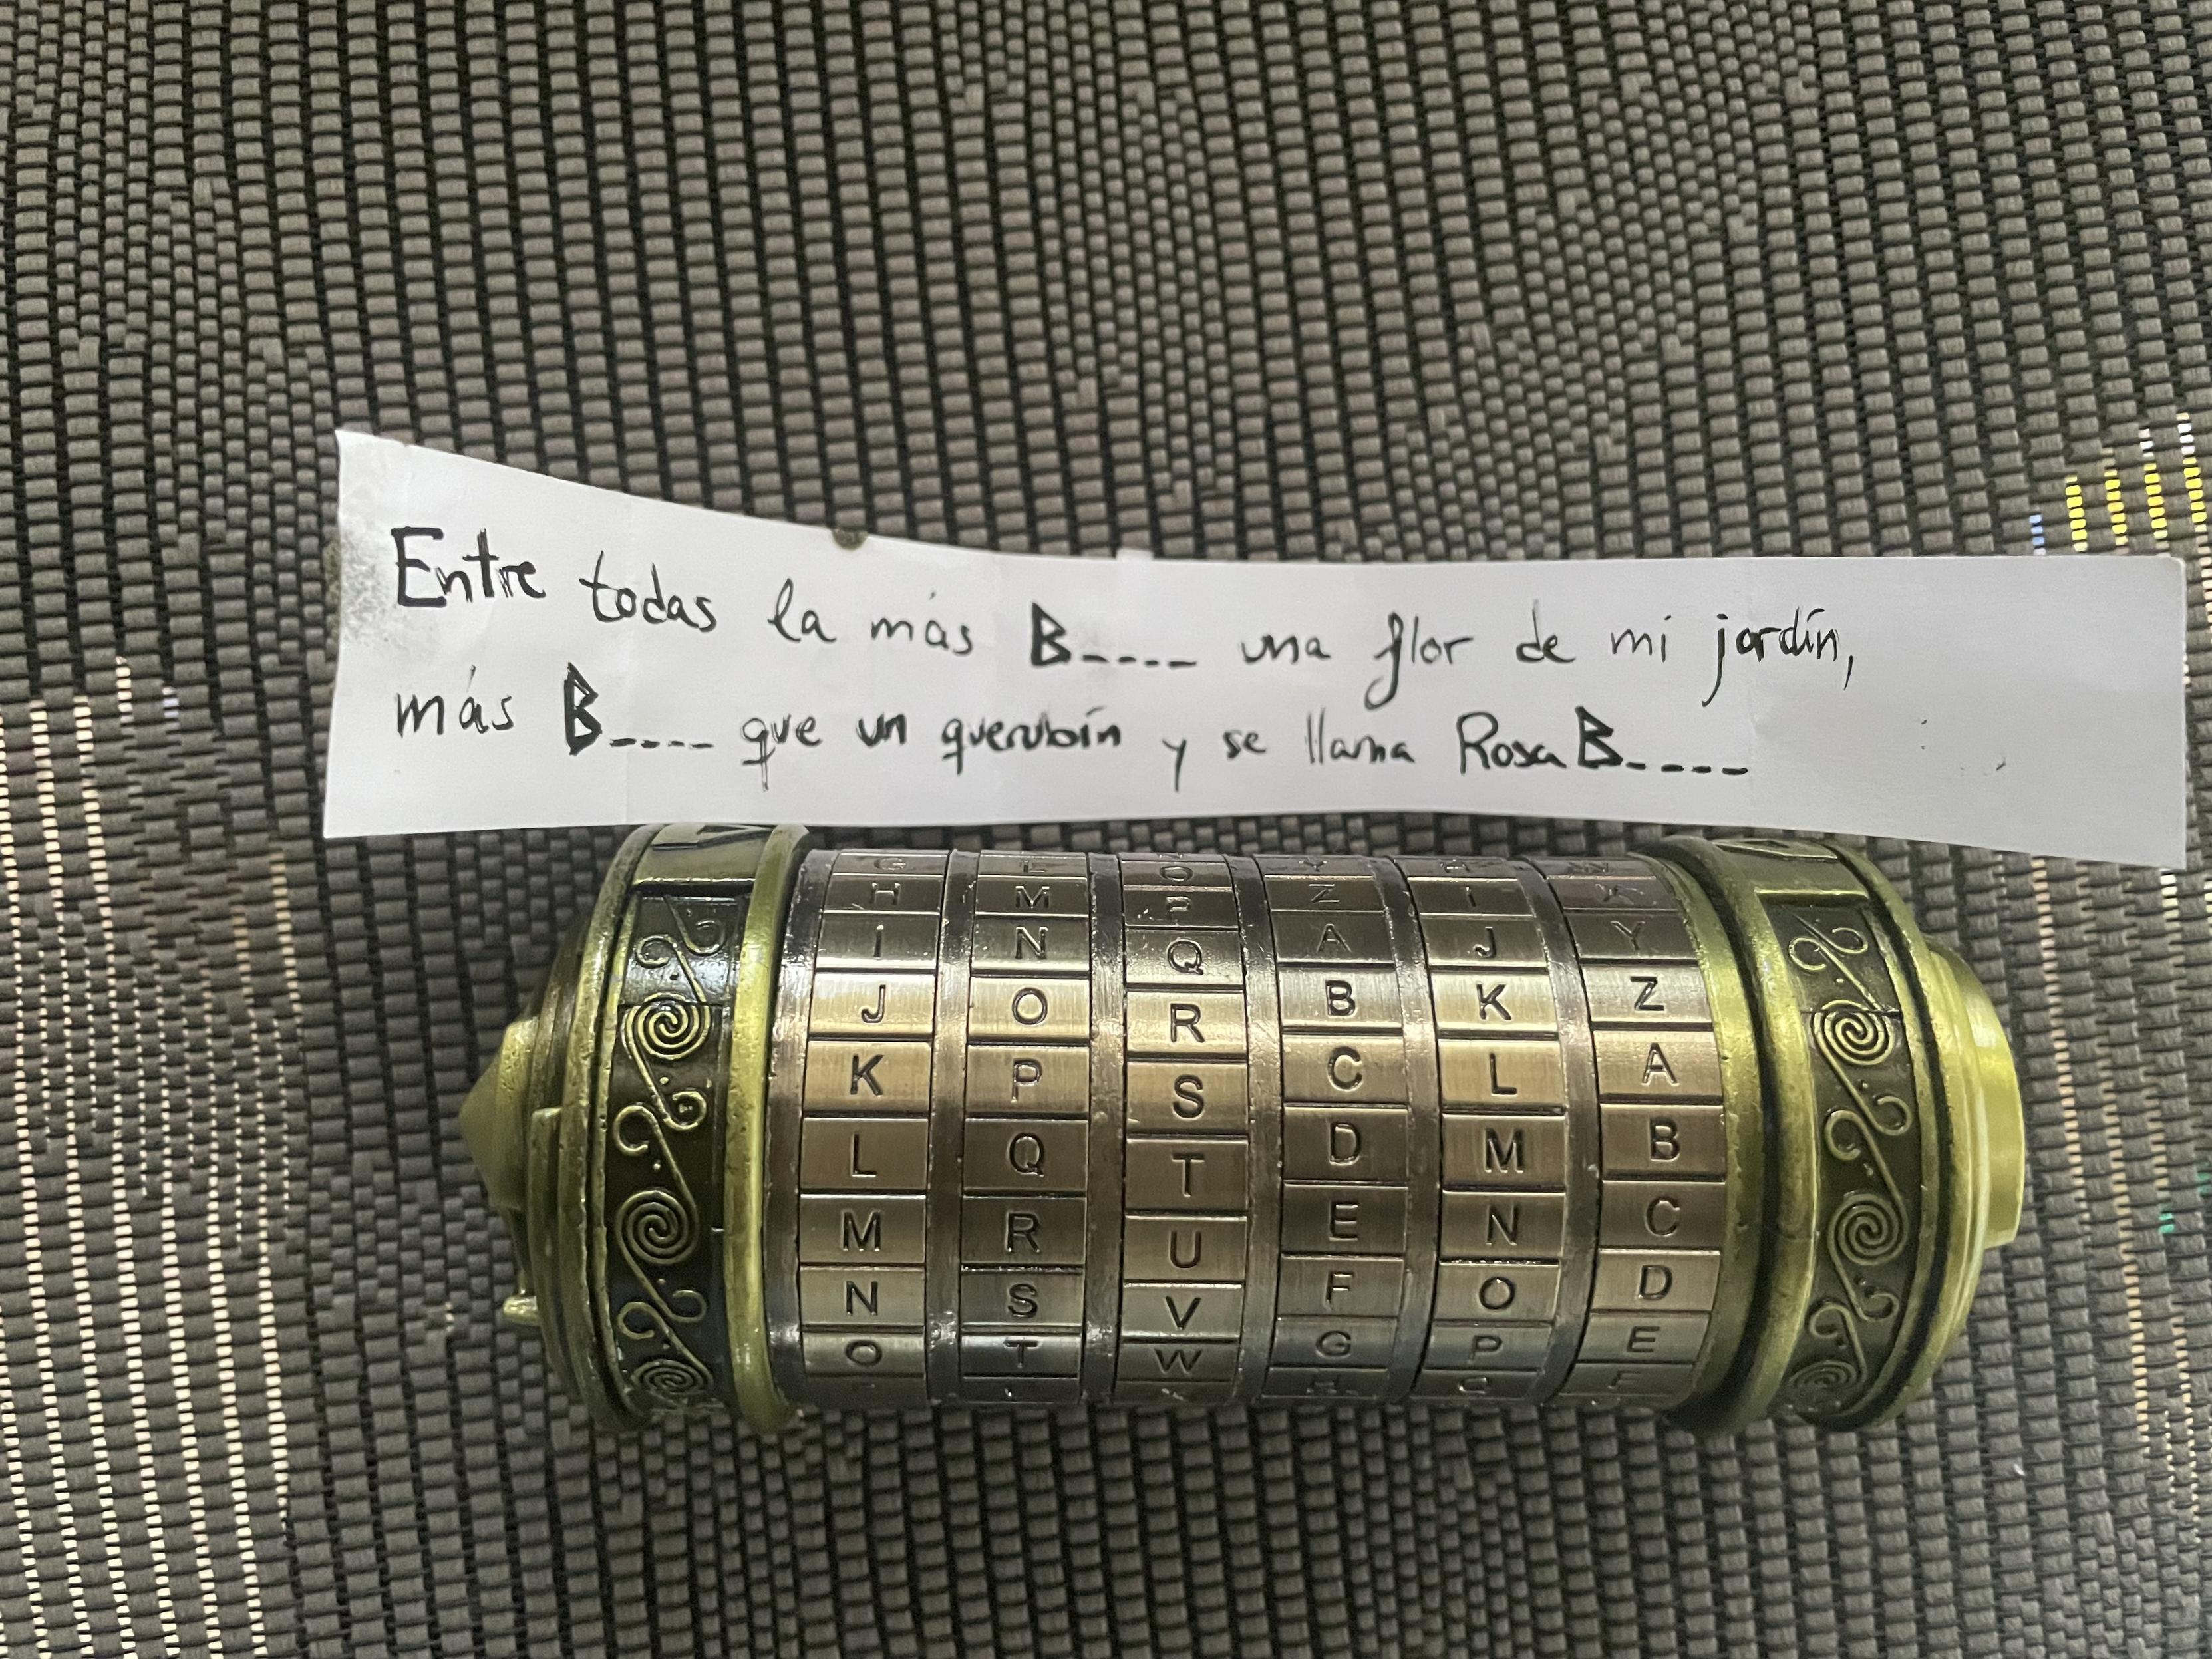 Entre todas la más B---- una flor de mi jardín,
más B---- que un querubín y se llama Rosa B----
G E O Y
H M P Z I X
I N Q A J Y
J O R B K Z
K P S C L A
L Q T D M B
M R U E N C
N S V F O D
O T W G P E